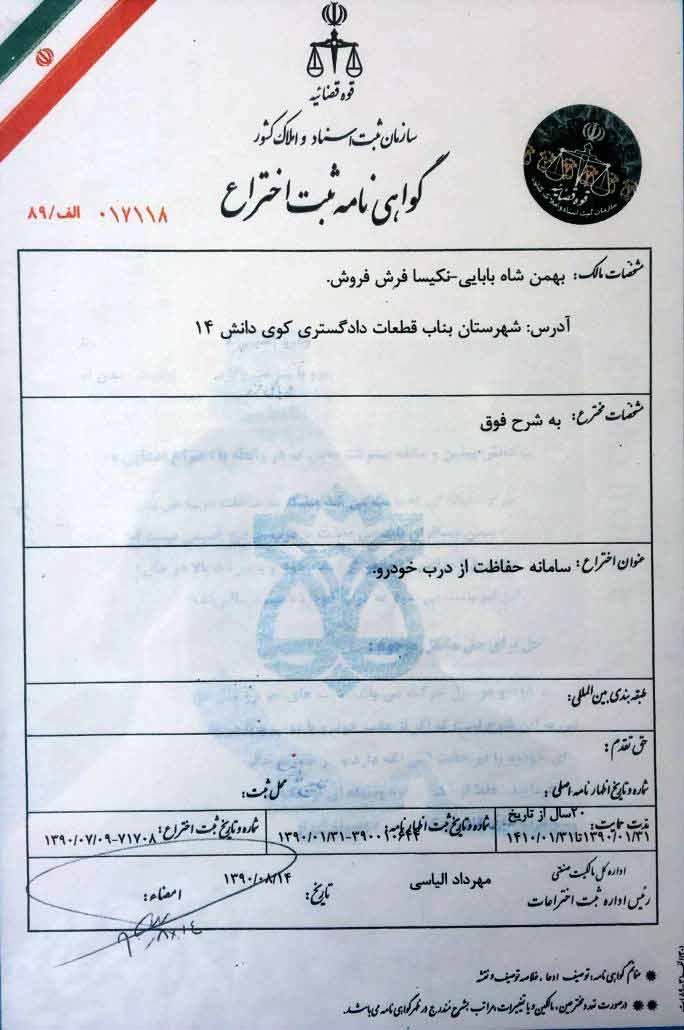 قوه قضائیه
سازمان ثبت اسناد و املاک کشور
گواهی نامه ثبت اختراع
۰۱۷۱۱۸ الف/۸۹
قوه قضائیه
سازمان ثبت اسناد و املاک کشور
مشخصات مالک: بهمن شاه بابایی-نکیسا فرش فروش.
آدرس: شهرستان بناب قطعات دادگستری کوی دانش ۱۴
مشخصات مخترع: به شرح فوق
عنوان اختراع: سامانه حفاظت از درب خودرو.
طبقه بندی بین المللی:
حق تقدم:
شماره و تاریخ اظهارنامه اصلی: محل ثبت:
مدت حمایت: ۲۰سال از تاریخ
۱۳۹۰/۰۱/۳۱تا۱۴۱۰/۰۱/۳۱
شماره و تاریخ ثبت اظهارنامه:
شماره و تاریخ ثبت اختراع: ۷۱۷۰۸-۱۳۹۰/۰۷/۰۹
اداره کل مالکیت صنعتی
رئیس اداره ثبت اختراعات
مهرداد الیاسی
تاریخ: ۱۳۹۰/۰۸/۱۴
امضاء:
منضم گواهی نامه، توصیف، ادعا، خلاصه توصیف و نقشه
درصورت تعدد مخترعین، مالکین و یا تغییرات، مراتب بشرح مندرج در ظهر گواهی نامه می باشد.